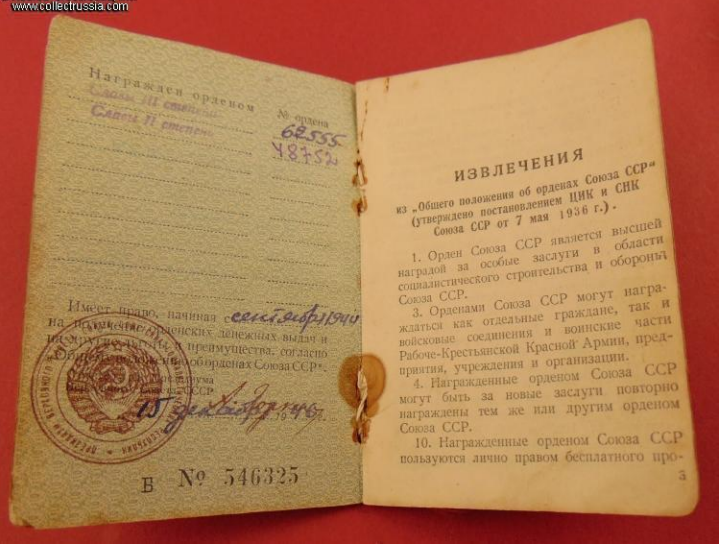 www.collectrussia.com
Награжден орденом
№ ордена
Славы III степени
62555
Славы II степень
48752
Имеет право, начиная с сентября 1944
на получение орденских денежных выдач и
на другие льготы и преимущества, согласно
„Общего положения об орденах Союза ССР“.
СССР
15 декабря 1946
Б № 546325
ИЗВЛЕЧЕНИЯ
из „Общего положения об орденах Союза ССР“
(утверждено постановлением ЦИК и СНК
Союза ССР от 7 мая 1936 г.).
1. Орден Союза ССР является высшей
наградой за особые заслуги в области
социалистического строительства и обороны
Союза ССР.
3. Орденами Союза ССР могут награ-
ждаться как отдельные граждане, так и
войсковые соединения и воинские части
Рабоче-Крестьянской Красной Армии, пред-
приятия, учреждения и организации.
4. Награжденные орденом Союза ССР
могут быть за новые заслуги повторно
награждены тем же или другим орденом
Союза ССР.
10. Награжденные орденом Союза ССР
пользуются лично правом бесплатного про-
3